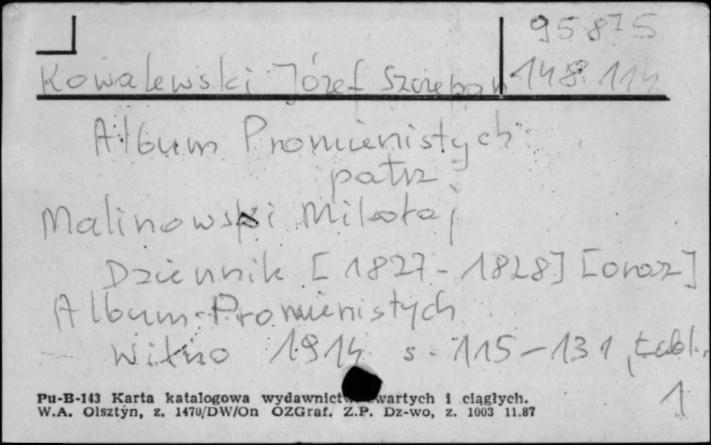 95875
Kowalewski Józef Szczepan 148.114
Album Promienistych
patrz
Malinowski Mikołaj
Dziennik [1827-1828] [oraz]
Album Promienistych
Wilno 1914 s. 115-131, tabl.
1
Pu-B-143 Karta katalogowa wydawnictw zwartych i ciągłych.
W.A. Olsztyn, z. 1470/DW/On OZGraf. Z.P. Dz-wo, z. 1003 11.87